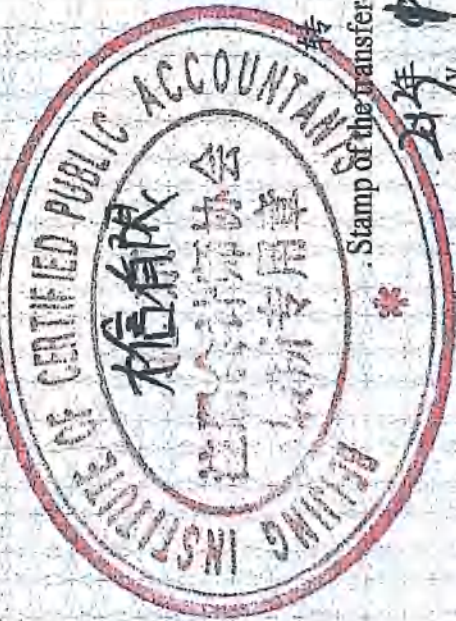 BEIJING INSTITUTE OF CERTIFIED PUBLIC ACCOUNTANTS
大信有限
北京注册会计师协会
转所专用章
转
Stamp of the transfer
年
y